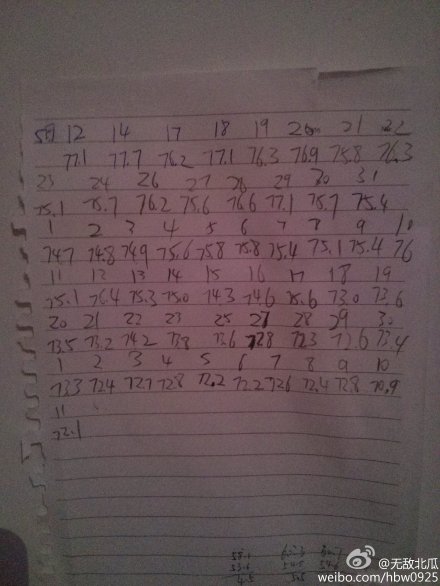 5月 12 14 17 18 19 20 21 22
77.1 77.7 76.2 77.1 76.3 76.9 75.8 76.3
23 24 26 27 28 29 30 31
75.1 75.7 76.2 75.6 76.6 77.1 75.7 75.4
1 2 3 4 5 6 7 8 9 10
74.7 74.8 74.9 75.6 75.8 75.8 75.4 75.1 75.4 76
11 12 13 14 15 16 17 18 19
75.1 76.4 75.3 75.0 74.3 74.6 75.6 73.0 73.6
20 21 22 23 25 27 28 29 30
73.5 73.2 74.2 73.8 73.6 72.8 72.3 72.6 73.4
1 2 3 4 5 6 7 8 9 10
73.3 72.4 72.7 72.8 72.2 72.2 72.6 72.4 72.8 70.9
11
72.1
58.1
53.6 54.5
4.5 5.5
@无敌北瓜
weibo.com/hbw0925